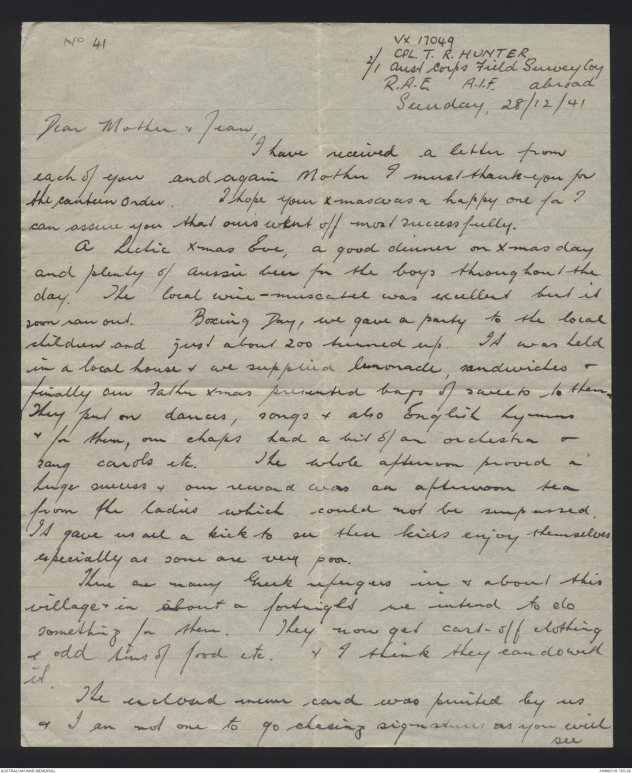 No 41
VX 17049
CPL. T. R. HUNTER
2/1 Aust Corps Field Survey Coy
R.A.E. A.I.F. abroad
Sunday, 28/12/41
Dear Mother & Jean,
I have received a letter from
each of you and again Mother I must thank-you for
the canteen order. I hope your x-mas was a happy one for I
can assure you that ours went off most successfully.
A hectic X-mas Eve, a good dinner on x-mas day
and plenty of aussie beer for the boys throughout the
day. The local wine - muscatel was excellent but it
soon ran out. Boxing Day, we gave a party to the local
children and just about 200 turned up. It was held
in a local house & we supplied lemonade, sandwiches &
finally our Father Xmas presented bags of sweets to them.
They put on dances, songs & also English hymns
& for them, our chaps had a bit of an orchestra &
sang carols etc. The whole afternoon proved a
huge success & our reward was an afternoon tea
from the ladies which could not be surpassed.
It gave us all a kick to see these kids enjoy themselves
especially as some are very poor.
There are many Greek refugees in & about this
village & in about a fortnight we intend to do
something for them. They now get cast-off clothing
& odd tins of food etc. & I think they can do with
it.
The enclosed menu card was printed by us
& I am not one to go chasing signatures as you will
see
AUSTRALIAN WAR MEMORIAL